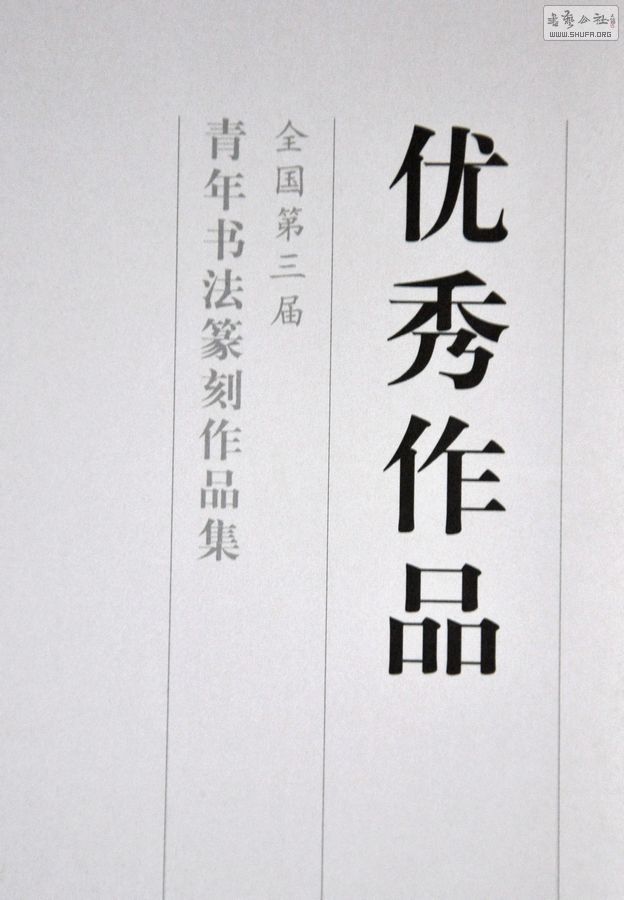 优秀作品
全国第三届
青年书法篆刻作品集
书艺公社
WWW.SHUFA.ORG